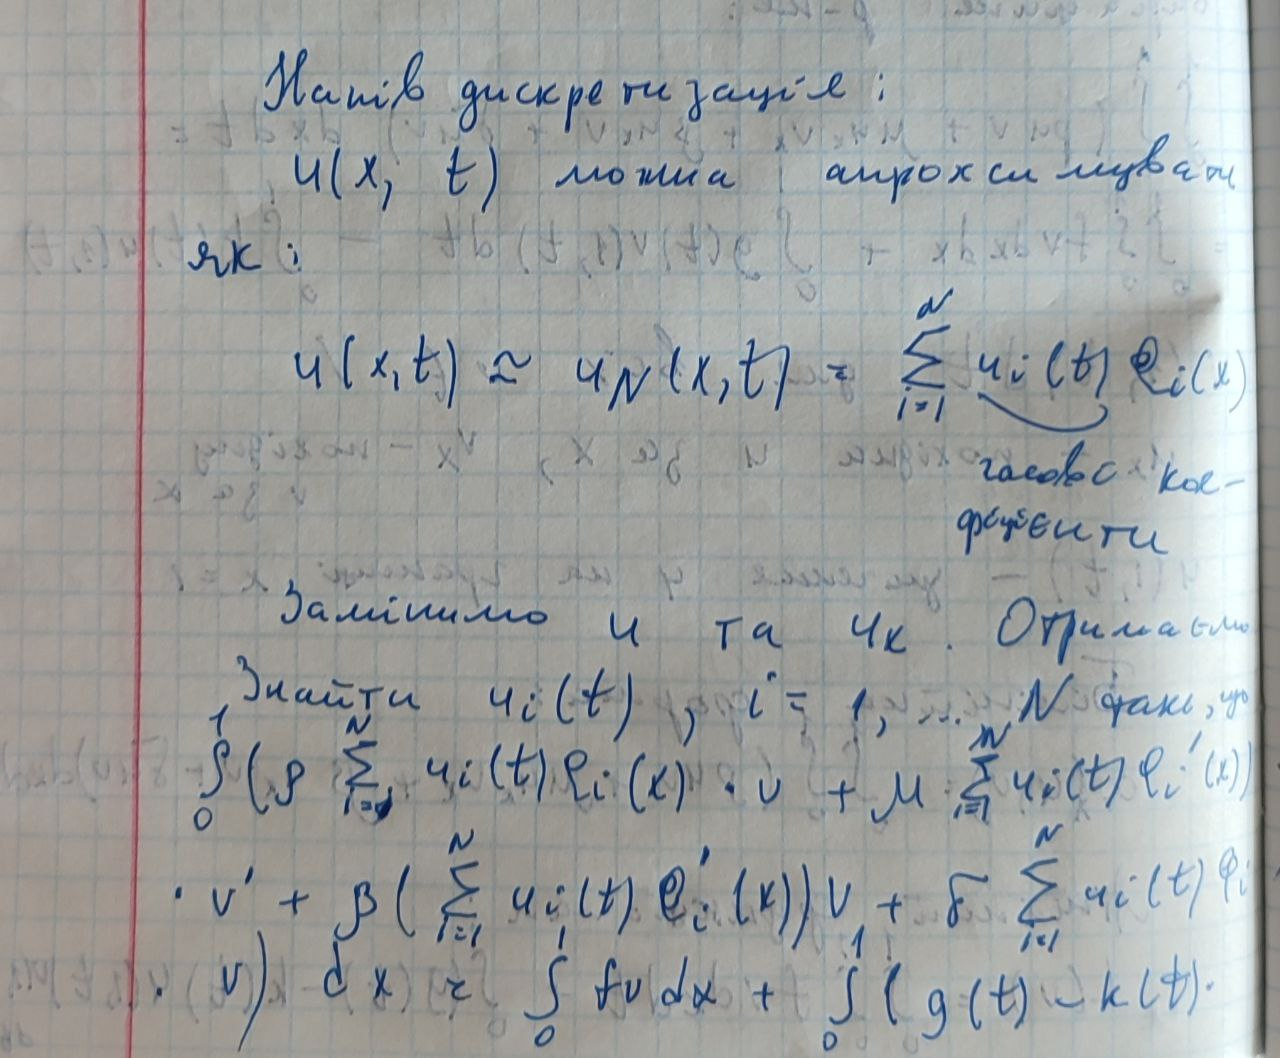 Напів дискретизація:
u(x, t) можна апроксимувати
як:
u(x,t) ≈ u_N(x,t) = ∑_{i=1}^{N} u_i(t) φ_i(x)
часові кое-
фіцієнти
Замінимо u та u_x. Отримаємо
Знайти u_i(t), i = 1, ... N такі, що
∫_0^1 (ρ ∑_{i=1}^{N} u_i(t) φ_i(x) · v + μ ∑_{i=1}^{N} u_i(t) φ_i'(x))
· v' + β (∑_{i=1}^{N} u_i(t) φ_i'(x)) v + σ ∑_{i=1}^{N} u_i(t) φ_i
· v) dx = ∫_0^1 fv dx + ∫_0^1 (g(t) - k(t) ·